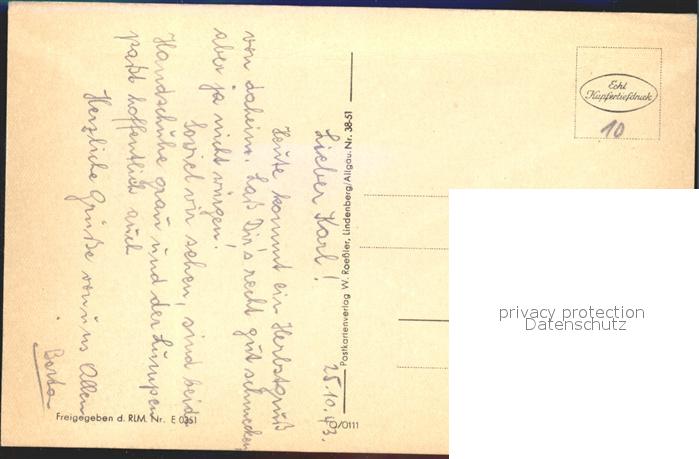 25.10.43.
Lieber Karl!
Heute kommt ein Herbstgruß
von daheim. Laß Dir's recht gut schmecken,
aber ja nicht würgen!
Soviel wir sehen, sind beide
Handschuhe grau und der Lumpen
paßt hoffentlich auch
Herzliche Grüße von uns Allen
Berta
Freigegeben d. RLM. Nr. E 0351
Postkartenverlag W. Raeßler, Lindenberg/Allgäu. Nr. 38-51
O/0111
Echt
Kupfertiefdruck
10
privacy protection
Datenschutz